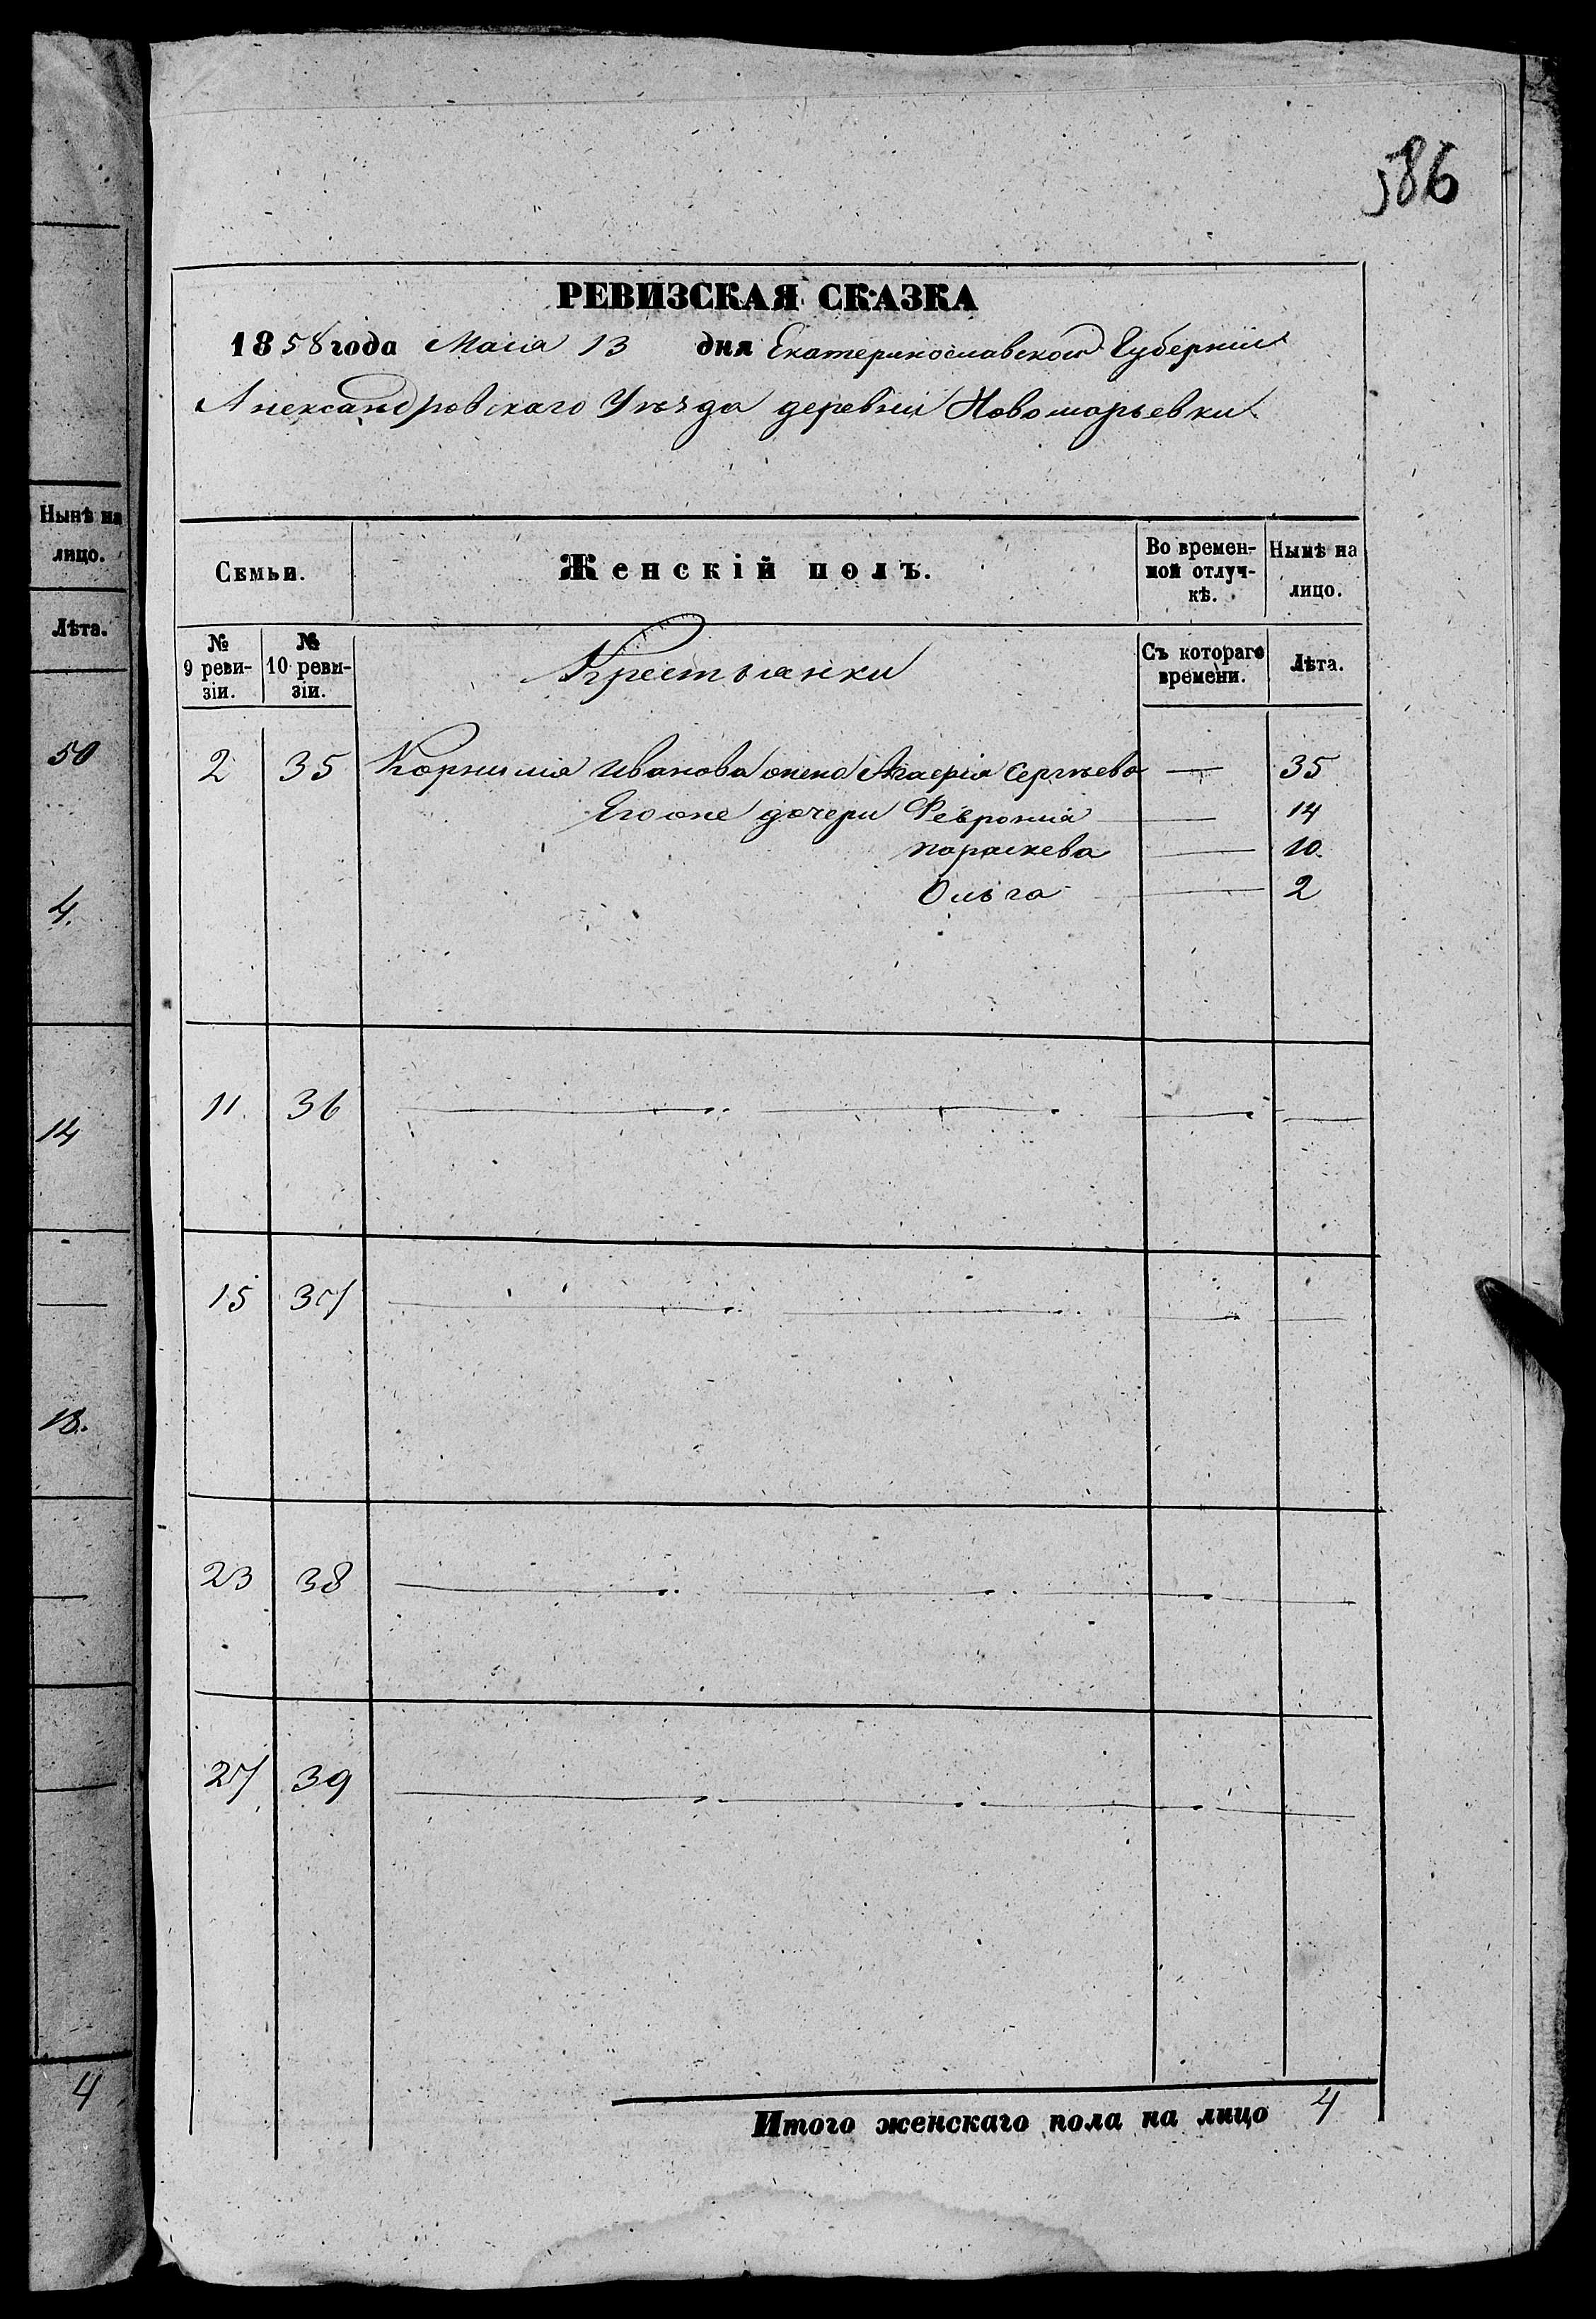 Нынѣ на
лицо.
Лѣта.
50
4.
14
18.
4
586
РЕВИЗСКАЯ СКАЗКА
1858 года Маія 13 дня Екатеринославской Губерніи
Александровскаго Уѣзда деревни Новомарьевки
Семьи. Женскій полъ. Во времен-ной отлуч-кѣ. Нынѣ на лицо.
№ 9 реви-зіи. № 10 реви-зіи. Крестьянки Съ котораго времени. Лѣта.
2 35 Корнилія Иванова жена Сергѣева — 35
Его же дочери Февронія — 14
Параскева — 10.
Ольга — 2
11. 36 — — — —
15 37 — — — —
23 38 — — — —
27 39 — — — —
Итого женскаго пола на лицо 4